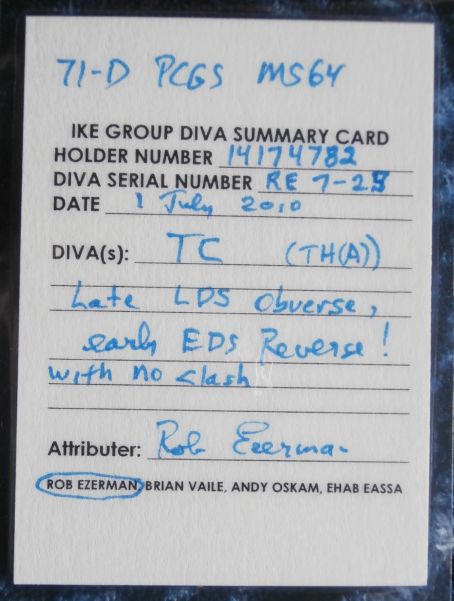 71-D PCGS MS64
IKE GROUP DIVA SUMMARY CARD
HOLDER NUMBER 14174782
DIVA SERIAL NUMBER RE 7-25
DATE 1 July 2010
DIVA(s): TC (TH(A))
Late LDS Obverse,
early EDS Reverse!
with no clash
Attributer: Rob Ezerman
ROB EZERMAN, BRIAN VAILE, ANDY OSKAM, EHAB EASSA